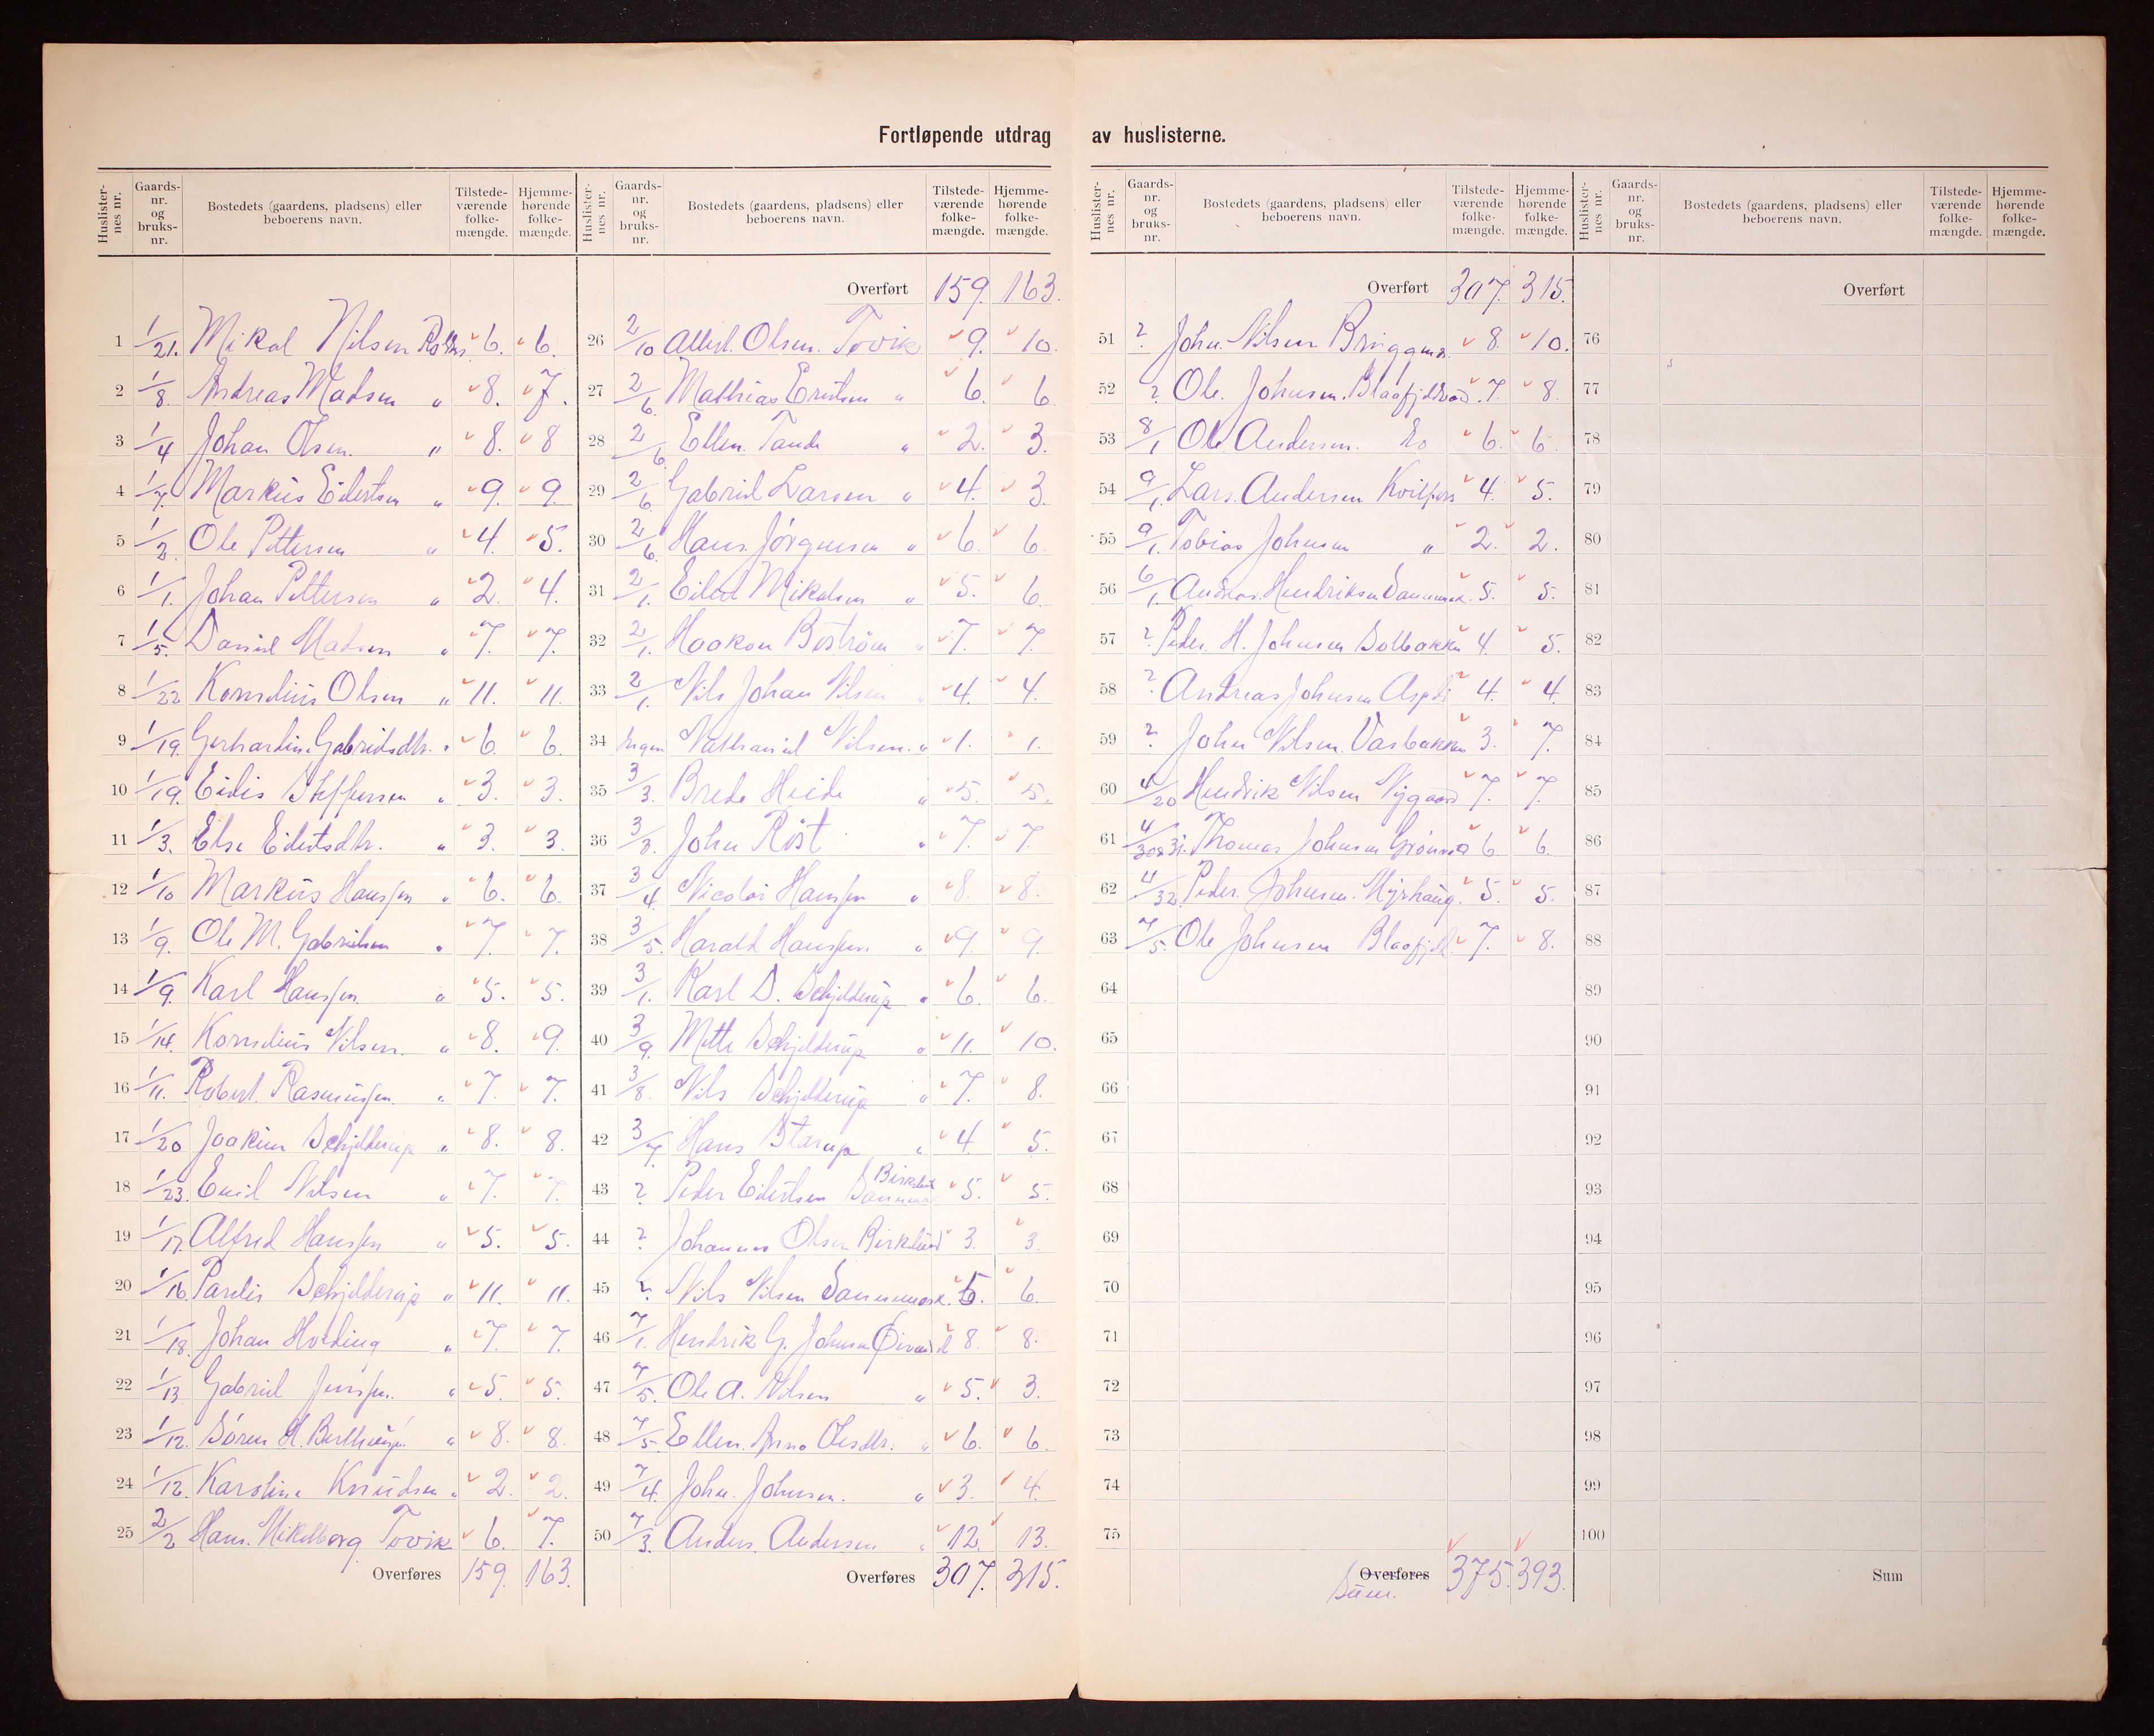 Fortløpende utdrag av huslisterne.
Huslisternes nr. Gaards-nr. og bruks-nr. Bostedets (gaardens, pladsens) eller beboerens navn. Tilstedeværende folkemængde. Hjemmehørende folkemængde.
1 1/21. Mikal Nilsen 6. 6.
2 1/8. Andreas Madsen " 8. 7.
3 1/4 Johan Olsen. " 8. 8
4 1/7. Markus Eilertsen " 9. 9.
5 1/2. Ole Pettersen " 4. 5.
6 1/1. Johan Pettersen " 2. 4.
7 1/5. Daniel Madsen " 7. 7.
8 1/22 Kornelius Olsen " 11. 11.
9 1/19. Gerhardine Gabrielsdtr. " 6. 6.
10 1/19. Steffensen " 3. 3.
11 1/3. Else Eilertsdtr. " 3. 3.
12 1/10 Markus Hanssen " 6. 6.
13 1/9. Ole M. Gabrielsen " 7. 7.
14 1/9. Karl Hanssen " 5. 5.
15 1/14. Kornelius Nilsen. " 8. 9.
16 1/11. Robert Rasmussen. " 7. 7.
17 1/20 Joakim Schjelderup " 8. 8.
18 1/23. Emil Nilsen " 7. 7.
19 1/17. Alfred Hanssen " 5. 5.
20 1/16. Parelis Schjelderup " 11. 11.
21 1/18. Johan Holding " 7. 7.
22 1/13 Gabriel Jenssen. " 5. 5.
23 1/12. Søren H. " 8. 8.
24 1/12. Karoline Knudsen " 2. 2.
25 2/2 Hans. Mikelborg Tovik 6. 7.
Overføres 159. 163.
Huslisternes nr. Gaards-nr. og bruks-nr. Bostedets (gaardens, pladsens) eller beboerens navn. Tilstedeværende folkemængde. Hjemmehørende folkemængde.
Overført 159. 163.
26 2/10 Albert. Olsen. Tovik 9. 10.
27 2/6. Mathias " 6. 6.
28 2/6 Ellen. Tande " 2. 3.
29 2/6. Gabriel Larsen " 4. 3.
30 2/6 Hans Jörgensen " 6. 6.
31 2/1. Eilert Mikalsen " 5. 6.
32 2/1. Haakon Boström " 7. 7.
33 2/1. Nils Johan Nilsen " 4. 4.
34 Ingen Nathaniel Nilsen. " 1. 1.
35 3/3. Brede Heide " 5. 5.
36 3/3. John Röst " 7. 7.
37 3/4. Nicolai Hanssen " 8. 8.
38 3/5. Harald Hanssen " 9. 9.
39 3/1. Karl D. Schjelderup " 6. 6.
40 3/9. Mette Schjelderup " 11. 10.
41 3/8. Nils Schjelderup " 7. 8.
42 3/7. Hans Starup " 4. 5.
43 ? Peder Eilertsen 5. 5.
44 ? Johannes Olsen Birkelund 3. 3.
45 ? Nils Nilsen 5. 6.
46 7/1. Hendrik G. Johnsen 8. 8.
47 7/5. Ole A. Nilsen " 5. 3.
48 7/5. Ellen. Anna Olesdtr. " 6. 6.
49 7/4. John. Johnsen. " 3. 4.
50 7/3. Anders. Andersen " 12. 13.
Overføres 307. 315.
Huslisternes nr. Gaards-nr. og bruks-nr. Bostedets (gaardens, pladsens) eller beboerens navn. Tilstedeværende folkemængde. Hjemmehørende folkemængde.
Overført 307. 315.
51 ? John. Nilsen 8. 10.
52 ? Ole. Johnsen. 7. 8.
53 8/1 Ole Andersen. 6. 6.
54 9/1. Lars. Andersen 4. 5.
55 9/1. Tobias Johnsen " 2. 2.
56 6/1. Andreas. Hendriksen 5. 5.
57 ? Peder. H. Johnsen Solbakken 4. 5.
58 ? Andreas Johnsen 4. 4.
59 ? John Nilsen. Vasbakken 3. 7.
60 4/20 Hendrik Nilsen Nygaard 7. 7.
61 4/30 & 31. Thomas Johnsen 6. 6.
62 4/32 Peder. Johnsen. Myrhaug. 5. 5.
63 7/5. Ole Johnsen Blaafjell 7. 8.
64
65
66
67
68
69
70
71
72
73
74
75
Overføres 375. 393.
Sum.
Huslisternes nr. Gaards-nr. og bruks-nr. Bostedets (gaardens, pladsens) eller beboerens navn. Tilstedeværende folkemængde. Hjemmehørende folkemængde.
Overført
76
77
78
79
80
81
82
83
84
85
86
87
88
89
90
91
92
93
94
95
96
97
98
99
100
Sum